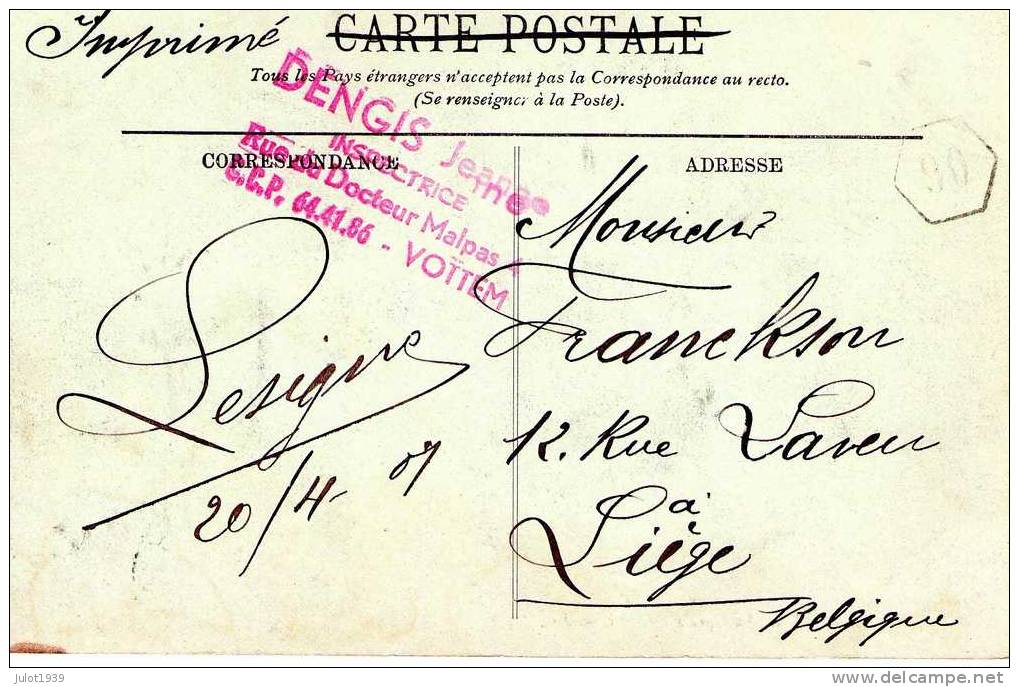 Imprimé
CARTE POSTALE
Tous les Pays étrangers n'acceptent pas la Correspondance au recto.
(Se renseigner à la Poste).
CORRESPONDANCE
ADRESSE
DENGIS Jeanne
INSPECTRICE
Rue du Docteur Malpas 4
C.C.P. 64.41.86 - VOTTEM
Lesigne
20/4 07
Monsieur
Franckson
12. Rue Laveu
à
Liége
Belgique
julot1939
delcampe.net